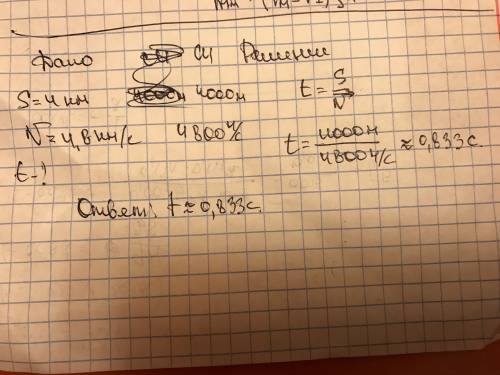 Дано СИ Решение
S=4км 4000м t=S/V
V=4,8км/с 4800м/с t=4000м/4800м/с≈0,833с.
t-?
Ответ: t≈0,833с.